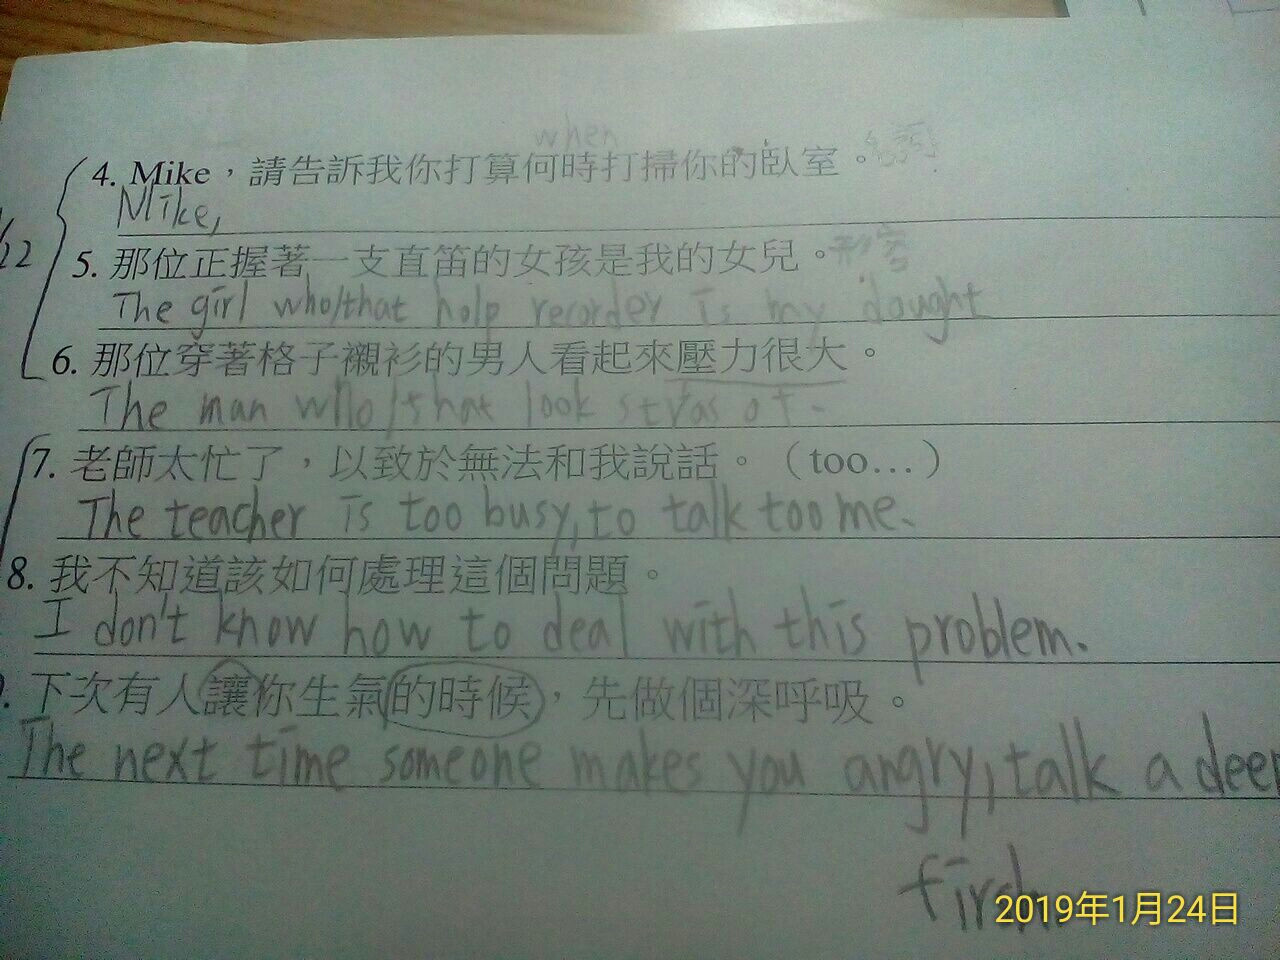 when
4. Mike，請告訴我你打算何時打掃你的臥室。名詞
Mike,
22
5. 那位正握著一支直笛的女孩是我的女兒。形容
The girl who/that help recorder is my dought
6. 那位穿著格子襯衫的男人看起來壓力很大。
The man who/that look
7. 老師太忙了，以致於無法和我說話。（too…）
The teacher is too busy, to talk too me.
8. 我不知道該如何處理這個問題。
I don't know how to deal with this problem.
下次有人讓你生氣的時候，先做個深呼吸。
The next time someone makes you angry, talk a deep
2019年1月24日